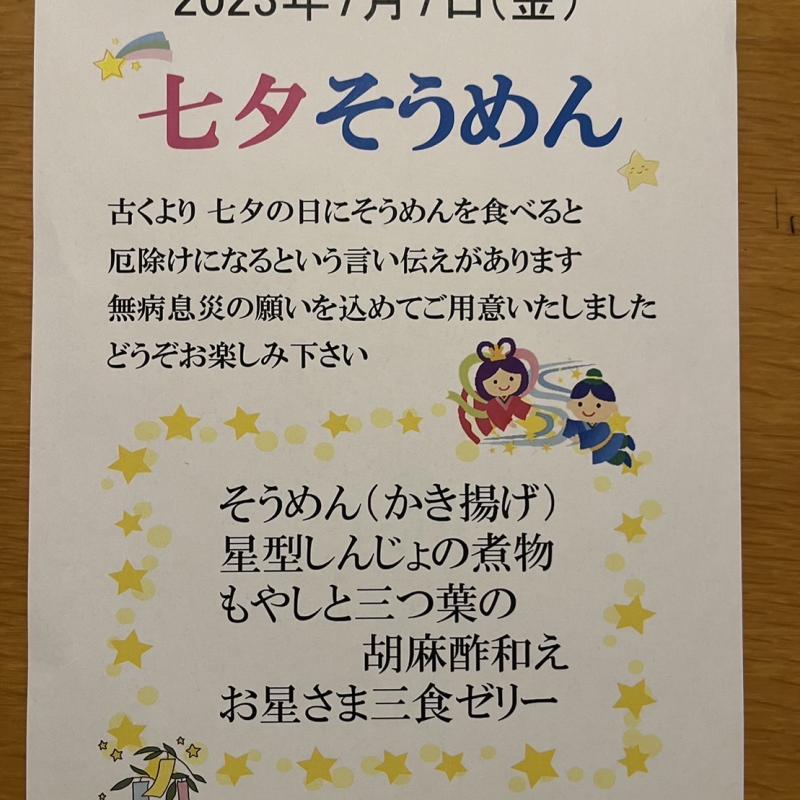 2023年7月7日(金)
七夕そうめん
古くより 七夕の日にそうめんを食べると
厄除けになるという言い伝えがあります
無病息災の願いを込めてご用意いたしました
どうぞお楽しみ下さい
そうめん(かき揚げ)
星型しんじょの煮物
もやしと三つ葉の
胡麻酢和え
お星さま三食ゼリー